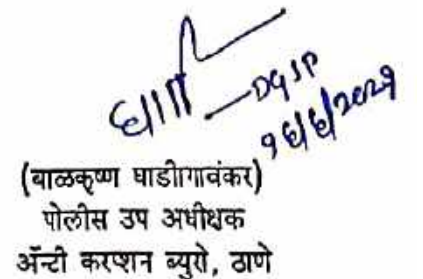 DYSP
(बाळकृष्ण घाडीगावंकर)
पोलीस उप अधीक्षक
ॲन्टी करप्शन ब्युरो, ठाणे